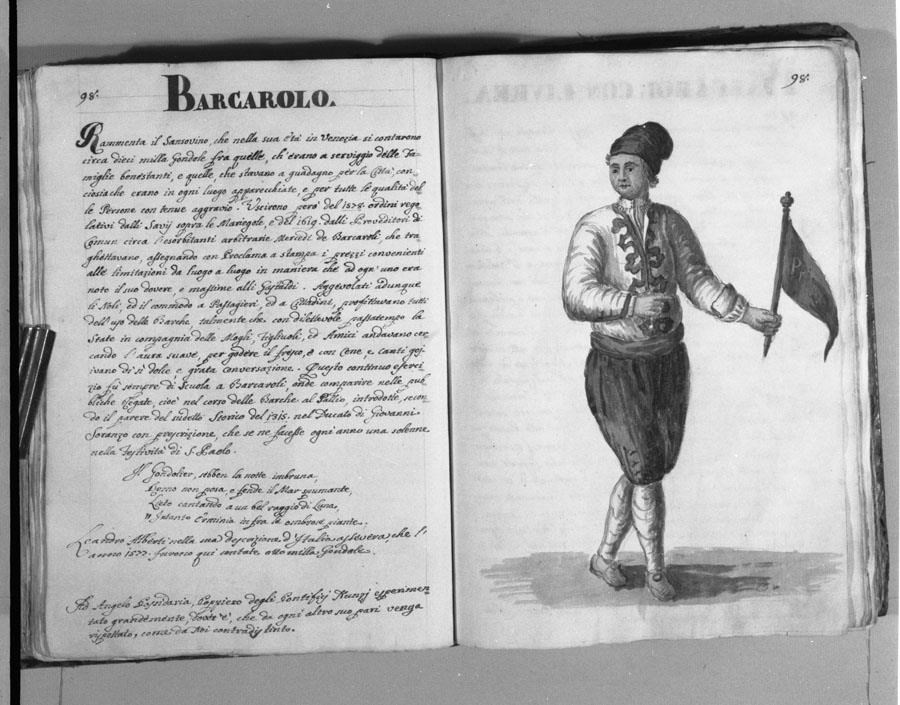 98.
BARCAROLO.
Rammenta il Sansovino, che nella sua età in Venezia si contarono
circa dieci milla Gondole frà quelle, ch'erano a serviggio delle Fa-
miglie benestanti, e quelle, che stavano a guadagno per la Città, con-
ciosiache erano in ogni luogo apparecchiate, e per tutte le qualità del
le Persone con tenue aggravio. Uscirono però del 1578. ordini rego
lativi dalli Savij sopra le Mariegole, e del 1619. dalli Provveditori di
Comun circa l'esorbitanti arbitrarie Mercedi de Barcaroli, che tra
ghettavano, assegnando con Proclama a stampa i prezzi convenienti
alle limitazioni da luogo a luogo in maniera che ad ogn'uno era
noto il suo dovere, e massime alli Gastaldi. Aggevolati adunque
li Noli, ed il commodo a Passagieri, ed a Cittadini, profittavano tutti
dell'uso delle Barche, talmente che con dilettevole passatempo la
State in compagnia delle Mogli, Figliuoli, ed Amici andavano cer
cando l'aura suave, per godere il fresco, e con Cene, e Canti goj-
ivano di sì dolce e grata conversazione. Questo continuo eserci
zio fù sempre di Scuola a Barcaroli, onde comparire nelle pub
bliche Regate, cioè nel corso delle Barche al Pallio, introdotte, secon
do il parere del sudetto Storico del 1315. nel Ducato di Giovanni
Soranzo con prescrizione, che se ne facesse ogni anno una solenne
nella Festività di S. Paolo.
Il Gondolier, sebben la notte imbruna,
Remo non posa, e fende il Mar spumante,
Lieto cantando a un bel raggio di Luna,
"Intanto Erminia infra le ombrose piante.
Leandro Alberti nella sua descrizione d'Italia assevera, che l'
anno 1577. furono qui contate otto milla Gondole.
Ad Angelo Coppiero degli Pontificij Nunzj esperimen
tato grandemente, dover è, che da ogni altro suo pari venga
rispettato, come da Noi contradistinto.
98.